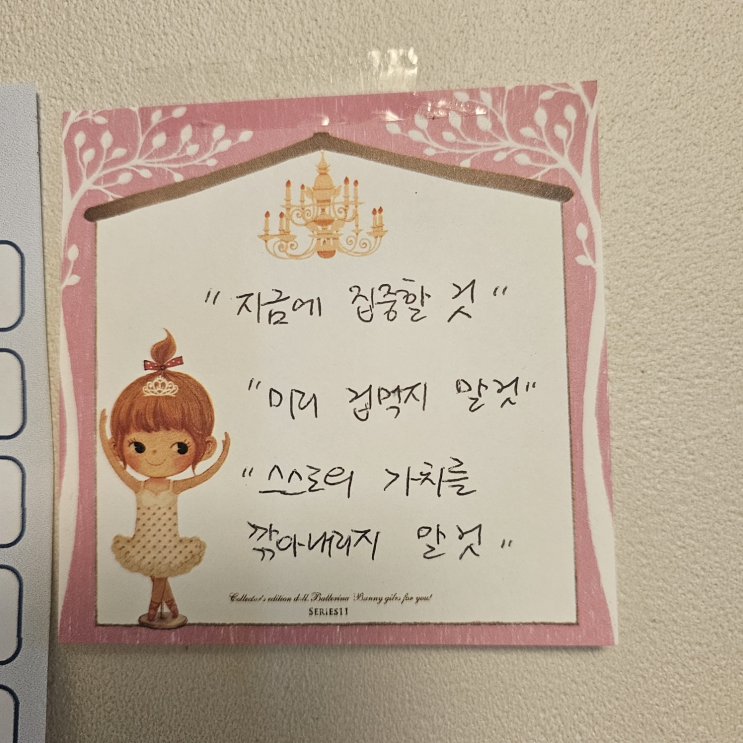 "지금에 집중할 것"
"미리 겁먹지 말것"
"스스로의 가치를
깎아내리지 말것"
Collector's edition doll. Ballerina Bunny gifts for you!
SERIES11